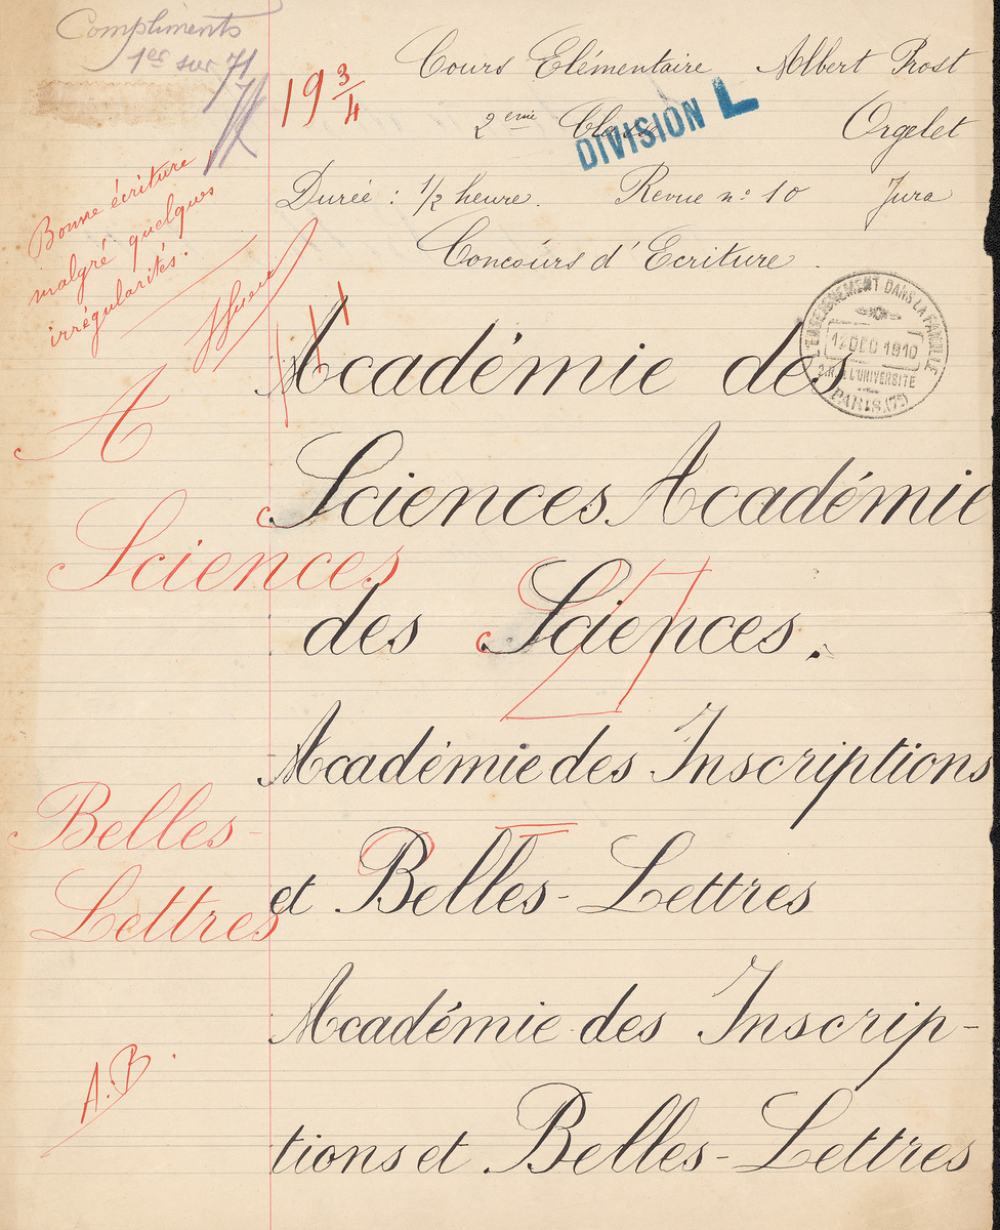 Compliments
1er sur 71
19 3/4
Cours Elémentaire Albert Prost
2eme Classe Orgelet
DIVISION L
Durée : 1/2 heure. Revue n° 10 Jura
Concours d'Ecriture.
Bonne écriture,
malgré quelques
irrégularités.
L'ENSEIGNEMENT DANS LA FAMILLE
17 DEC 1910
2, R. DE L'UNIVERSITÉ
PARIS (7e)
Académie des
A
Sciences. Académie
Sciences
des Sciences.
Académie des Inscriptions
Belles-
et Belles-Lettres
Lettres
Académie des Inscrip-
A.B.
tions et Belles-Lettres